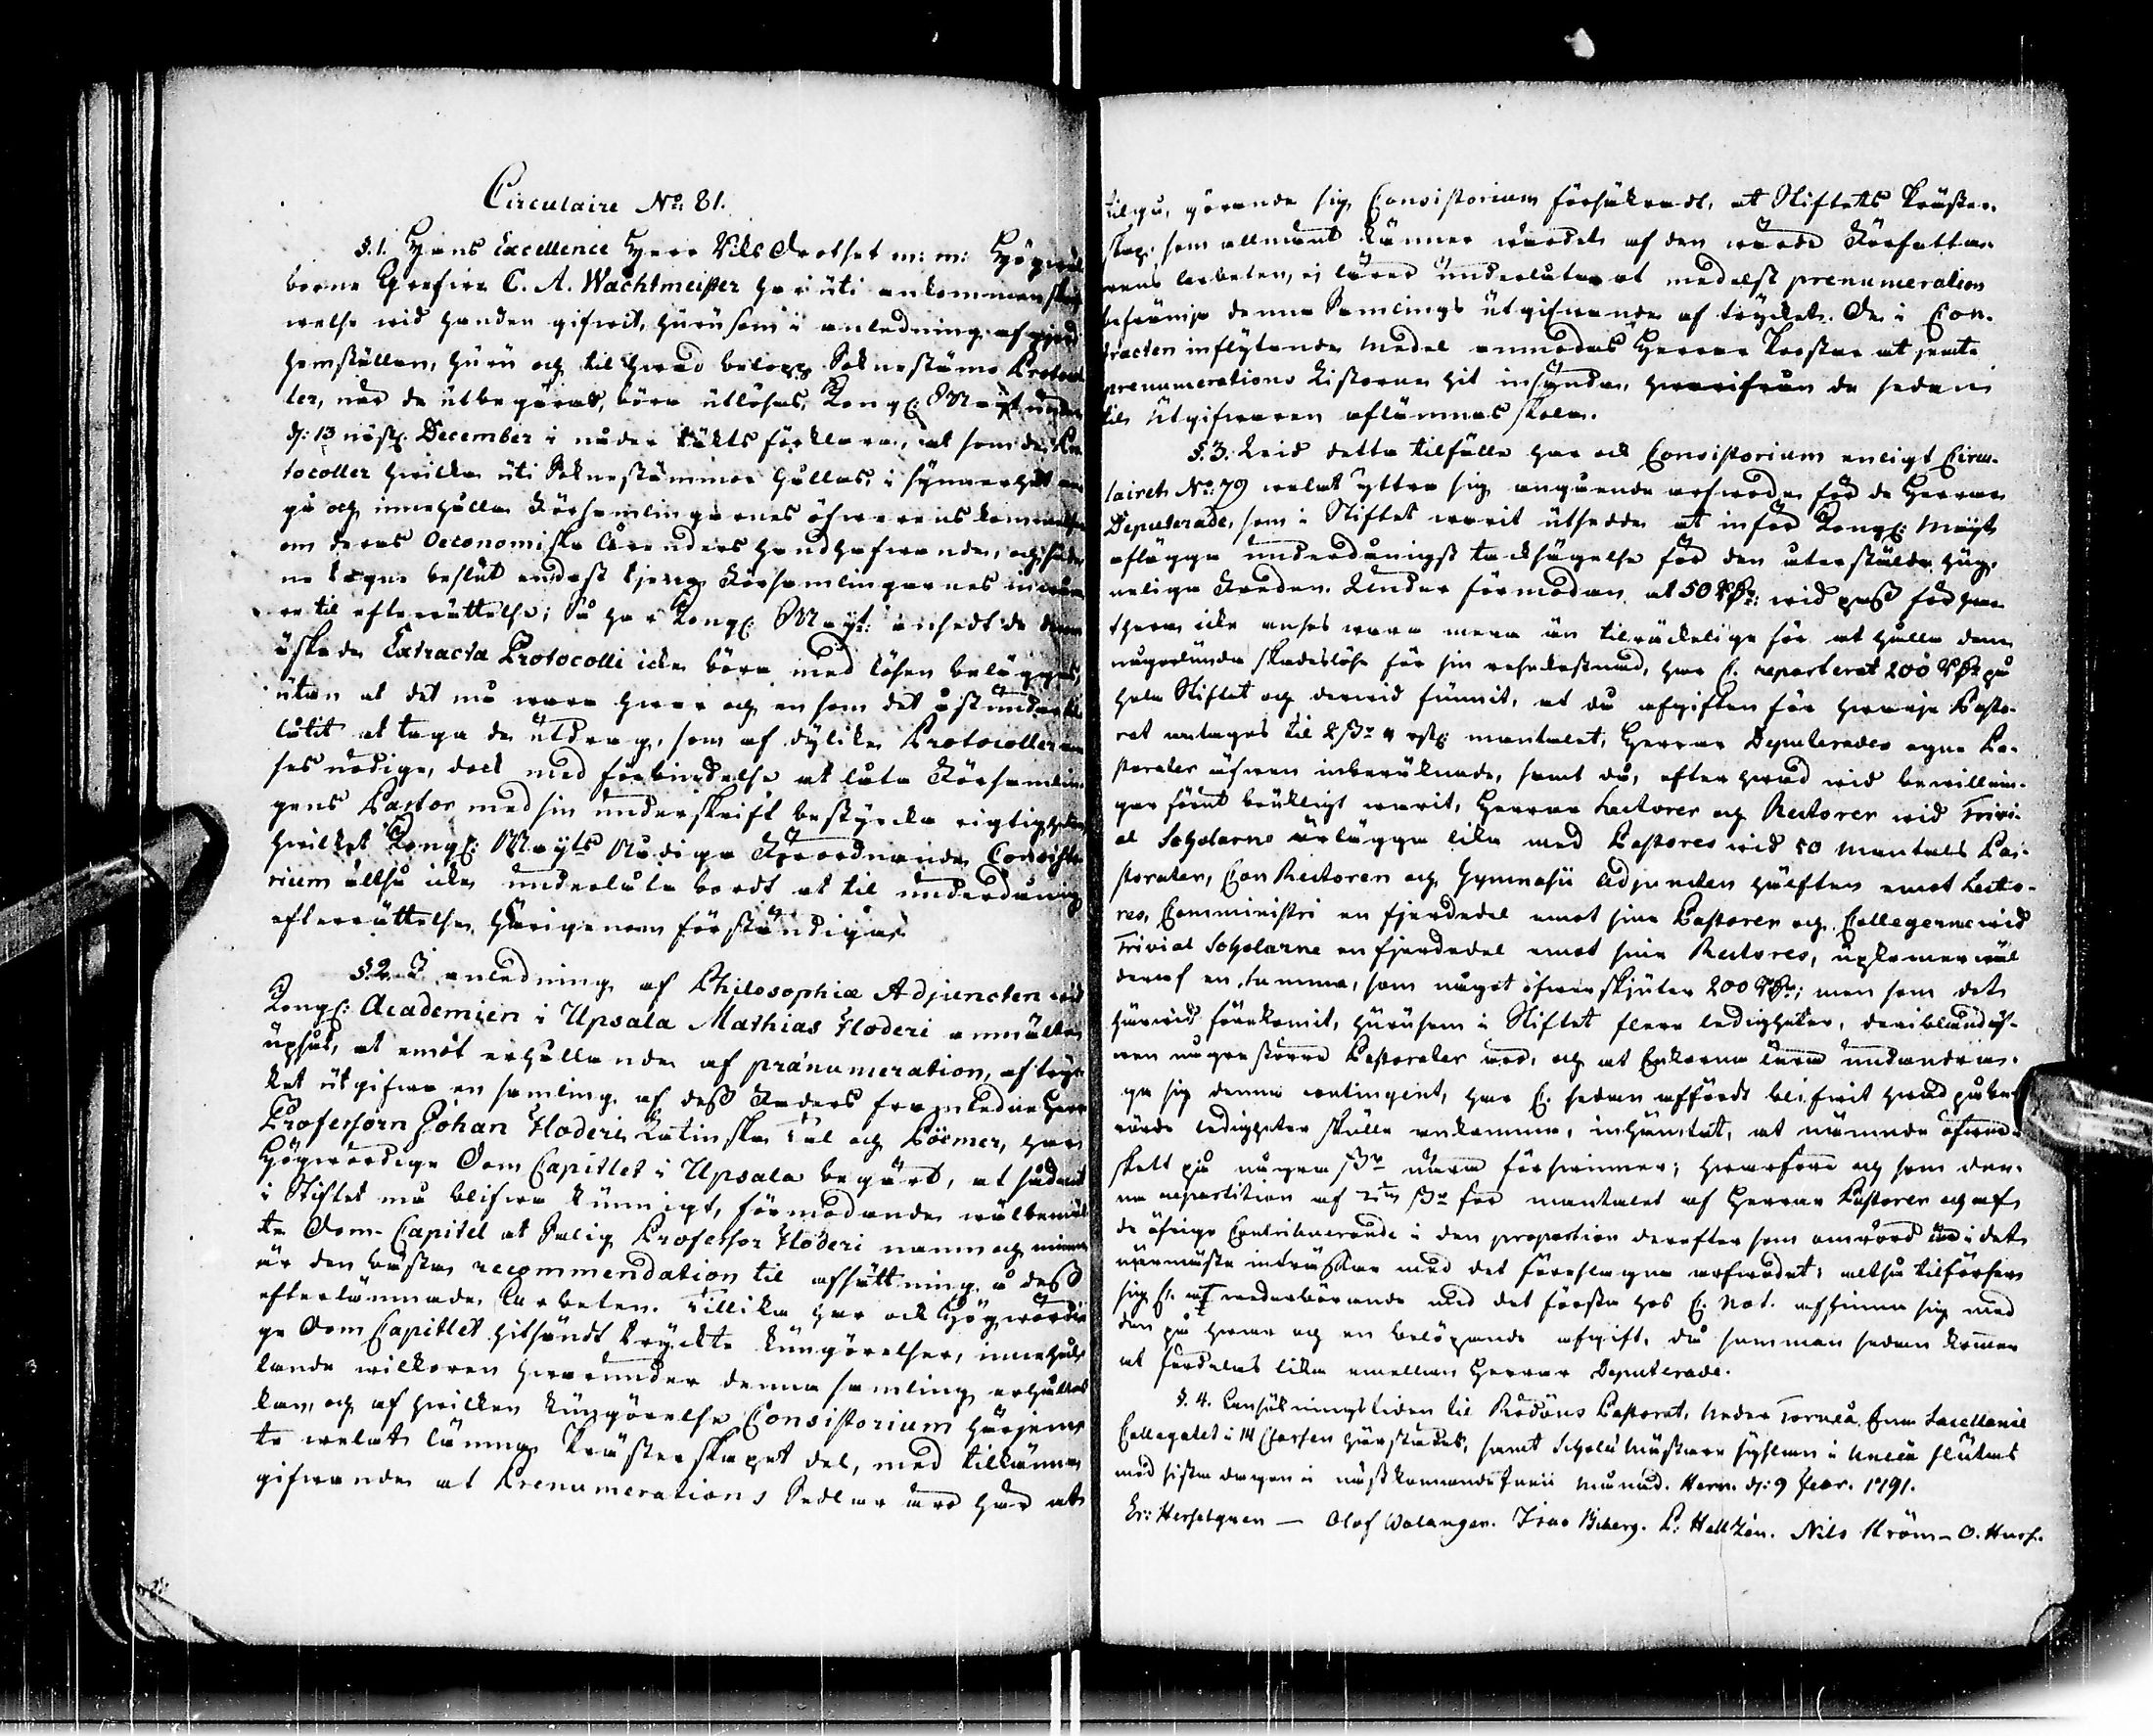 Circulaire No: 81.
§.1. Hans Excellence Herr RiksDrotset m: m: Högwäl
borne Grefwe C. A. Wachtmeister har uti ankommen skrif
welse wid handen gifwit, hurusom i anledning af gjord
hemställan, huru och til hwad belopp Sokenstäms Protocol
ler, när de utbegäras, böra utlösas, Kongl: Mayt under
d: 13 näst: December i nåder täckts förklara, at som de Pro
tocoller hwilka uti Sokenstämmor hållas, i synnerhet an
gå och innehålla Församlingarnes öfwerenskommelse
om deras Oeconomiska Ärenders handhafwande, och såda
ne tagne beslut endast tjena Församlingarnes inwåna
re til efterrättelse; Så har Kongl: Mayt: ansedt de deraf
äskade Extracta Protocolli icke böra med lösen beläggas,
utan at det må wara hwar och en som det åstundar til
låtit at taga de utdrag, som af dylika Protocoller an
ses nödige, dock med förbindelse at låta Församlin
gens Pastor med sin underskrift bestyrcka rigtigheten
hwilket Kongl: Mayts Nådiga Förordnande Consisto
rium altså icke underlåta bordt at til underdånig
efterrättelse härigenom förständiga.
§.2. I anledning af Philosophiæ Adjuncten wid
Kongl: Academien i Upsala Mathias Floderi anmälte
upsåt, at emot erhållande af prænumeration, af tryc
ket utgifwa en samling af dess Faders framledne Herr
Professorn Johan Floderi Latinska Tal och Poëmer, har
Högwördige DomCapitlet i Upsala begärt, at sådant
i Stiftet må blifwa kunnigt, förmodande wälbemäl
te Dom-Capitel at Salig Professor Floderi namn och minne
är den bästa recommendation til afsättning å dess
efterlämnade Arbeten. Tillika har ock Högwördi
ge DomCapitlet hitsändt tryckte kungörelser, innehål
lande wilkoren hwarunder denna samling erhållas
kan, och af hwilken kungörelse Consistorium härjem
te welat lämna Prästerskapet del, med tilkänna
gifwande at Prenumerations Sedlar äro här at
tilgå, görande sig Consistorium försäkradt, at Stiftets Präster-
skap, som allmänt känner wärdet af den wärde Författa-
rens arbeten, ej lärer underlåta at medelst prenumeration
befrämja denna Samlings utgifwande af trycket. De i Con-
tracten inflytande medel anmodas Herrar Prostar at jemte
prenumerations Listorne hit insända, hwarifrån de sedan
til Utgifwaren aflämnas skola.
§.3. Wid detta tilfälle har ock Consistorium enligt Circu-
lairet No: 79 welat yttra sig angående arfwode för de Herrar
Deputerade, som i Stiftet warit utsedde at inför Kongl: Mayt
aflägga underdånigst tacksägelse för den återstälda hug-
neliga Freden. Under förmodan at 50 Rdr: wid pass för hwar
thera icke anses wara mera än tilräckelige för at hålla dem
någorlunda skadeslöse för sin resekostnad, har C. reparterat 200 Rdr på
hela Stiftet och derwid funnit, at då afgiften för hwarje Pasto-
rat antages til 2 sk: 4 rst: mantalet, Herrar Deputerades egna Pa-
storater äfwen inberäknade, samt då, efter hwad wid bewillnin-
gar förut brukligt warit, Herrar Lectorer och Rectorer wid Trivi-
al Scholarne erlägga lika med Pastores wid 50 mantals Pa-
storater, ConRectoren och Gymnasii Adjuncten hälften emot Lecto-
res, Comministri en fjerdedel emot sine Pastorer och Collegerne wid
Trivial Scholarne en fjerdedel emot sine Rectores, upkommer wäl
deraf en summa, som något öfwerskjuter 200 Rdr; men som det
härwid förekomit, hurusom i Stiftet flere ledigheter, deribland äf-
wen någre större Pastorater äro, och at Enkorna lära undandra-
ga sig denna contingent, har C. sedan affördt blifwit hwad på be-
rörde ledigheter skulle ankomma, inhämtat, at nämnde öfwer-
skott på några sk: nära förswinner; hwarföre och som den-
na repartition af 2 sk: för mantalet af Herrar Pastorer och af
de öfrige Contribuerande i den proportion derefter som omrörd är i det
närmaste inträffar med det föreslagna arfwodet; altså tilförser
sig C. at wederbörande med det första hos C. Not. affinna sig med
den på hwar och en belöpande afgift, då summan sedan kommer
at fördelas lika emellan Herrar Deputerade.
§. 4. Ansökningstiden til Rödöns Pastorat, Neder Torneå Sacellanie
Collegatet i III Classen härstädes, samt Scholæ Mästare syslan i Umeå slutas
med sista dagen i nästkommande Junii månad. Hern. d: 9 Febr. 1791.
Er: Hesselgren — Olof Walanger. Isac Biberg. P: Hellzén. Nils Ström - O. Huss.